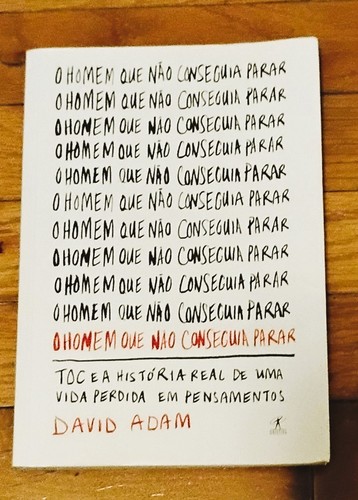 O HOMEM QUE NÃO CONSEGUIA PARAR
O HOMEM QUE NÃO CONSEGUIA PARAR
O HOMEM QUE NÃO CONSEGUIA PARAR
O HOMEM QUE NÃO CONSEGUIA PARAR
O HOMEM QUE NÃO CONSEGUIA PARAR
O HOMEM QUE NÃO CONSEGUIA PARAR
O HOMEM QUE NÃO CONSEGUIA PARAR
O HOMEM QUE NÃO CONSEGUIA PARAR
O HOMEM QUE NÃO CONSEGUIA PARAR
O HOMEM QUE NÃO CONSEGUIA PARAR
O HOMEM QUE NÃO CONSEGUIA PARAR
TOC E A HISTÓRIA REAL DE UMA
VIDA PERDIDA EM PENSAMENTOS
DAVID ADAM